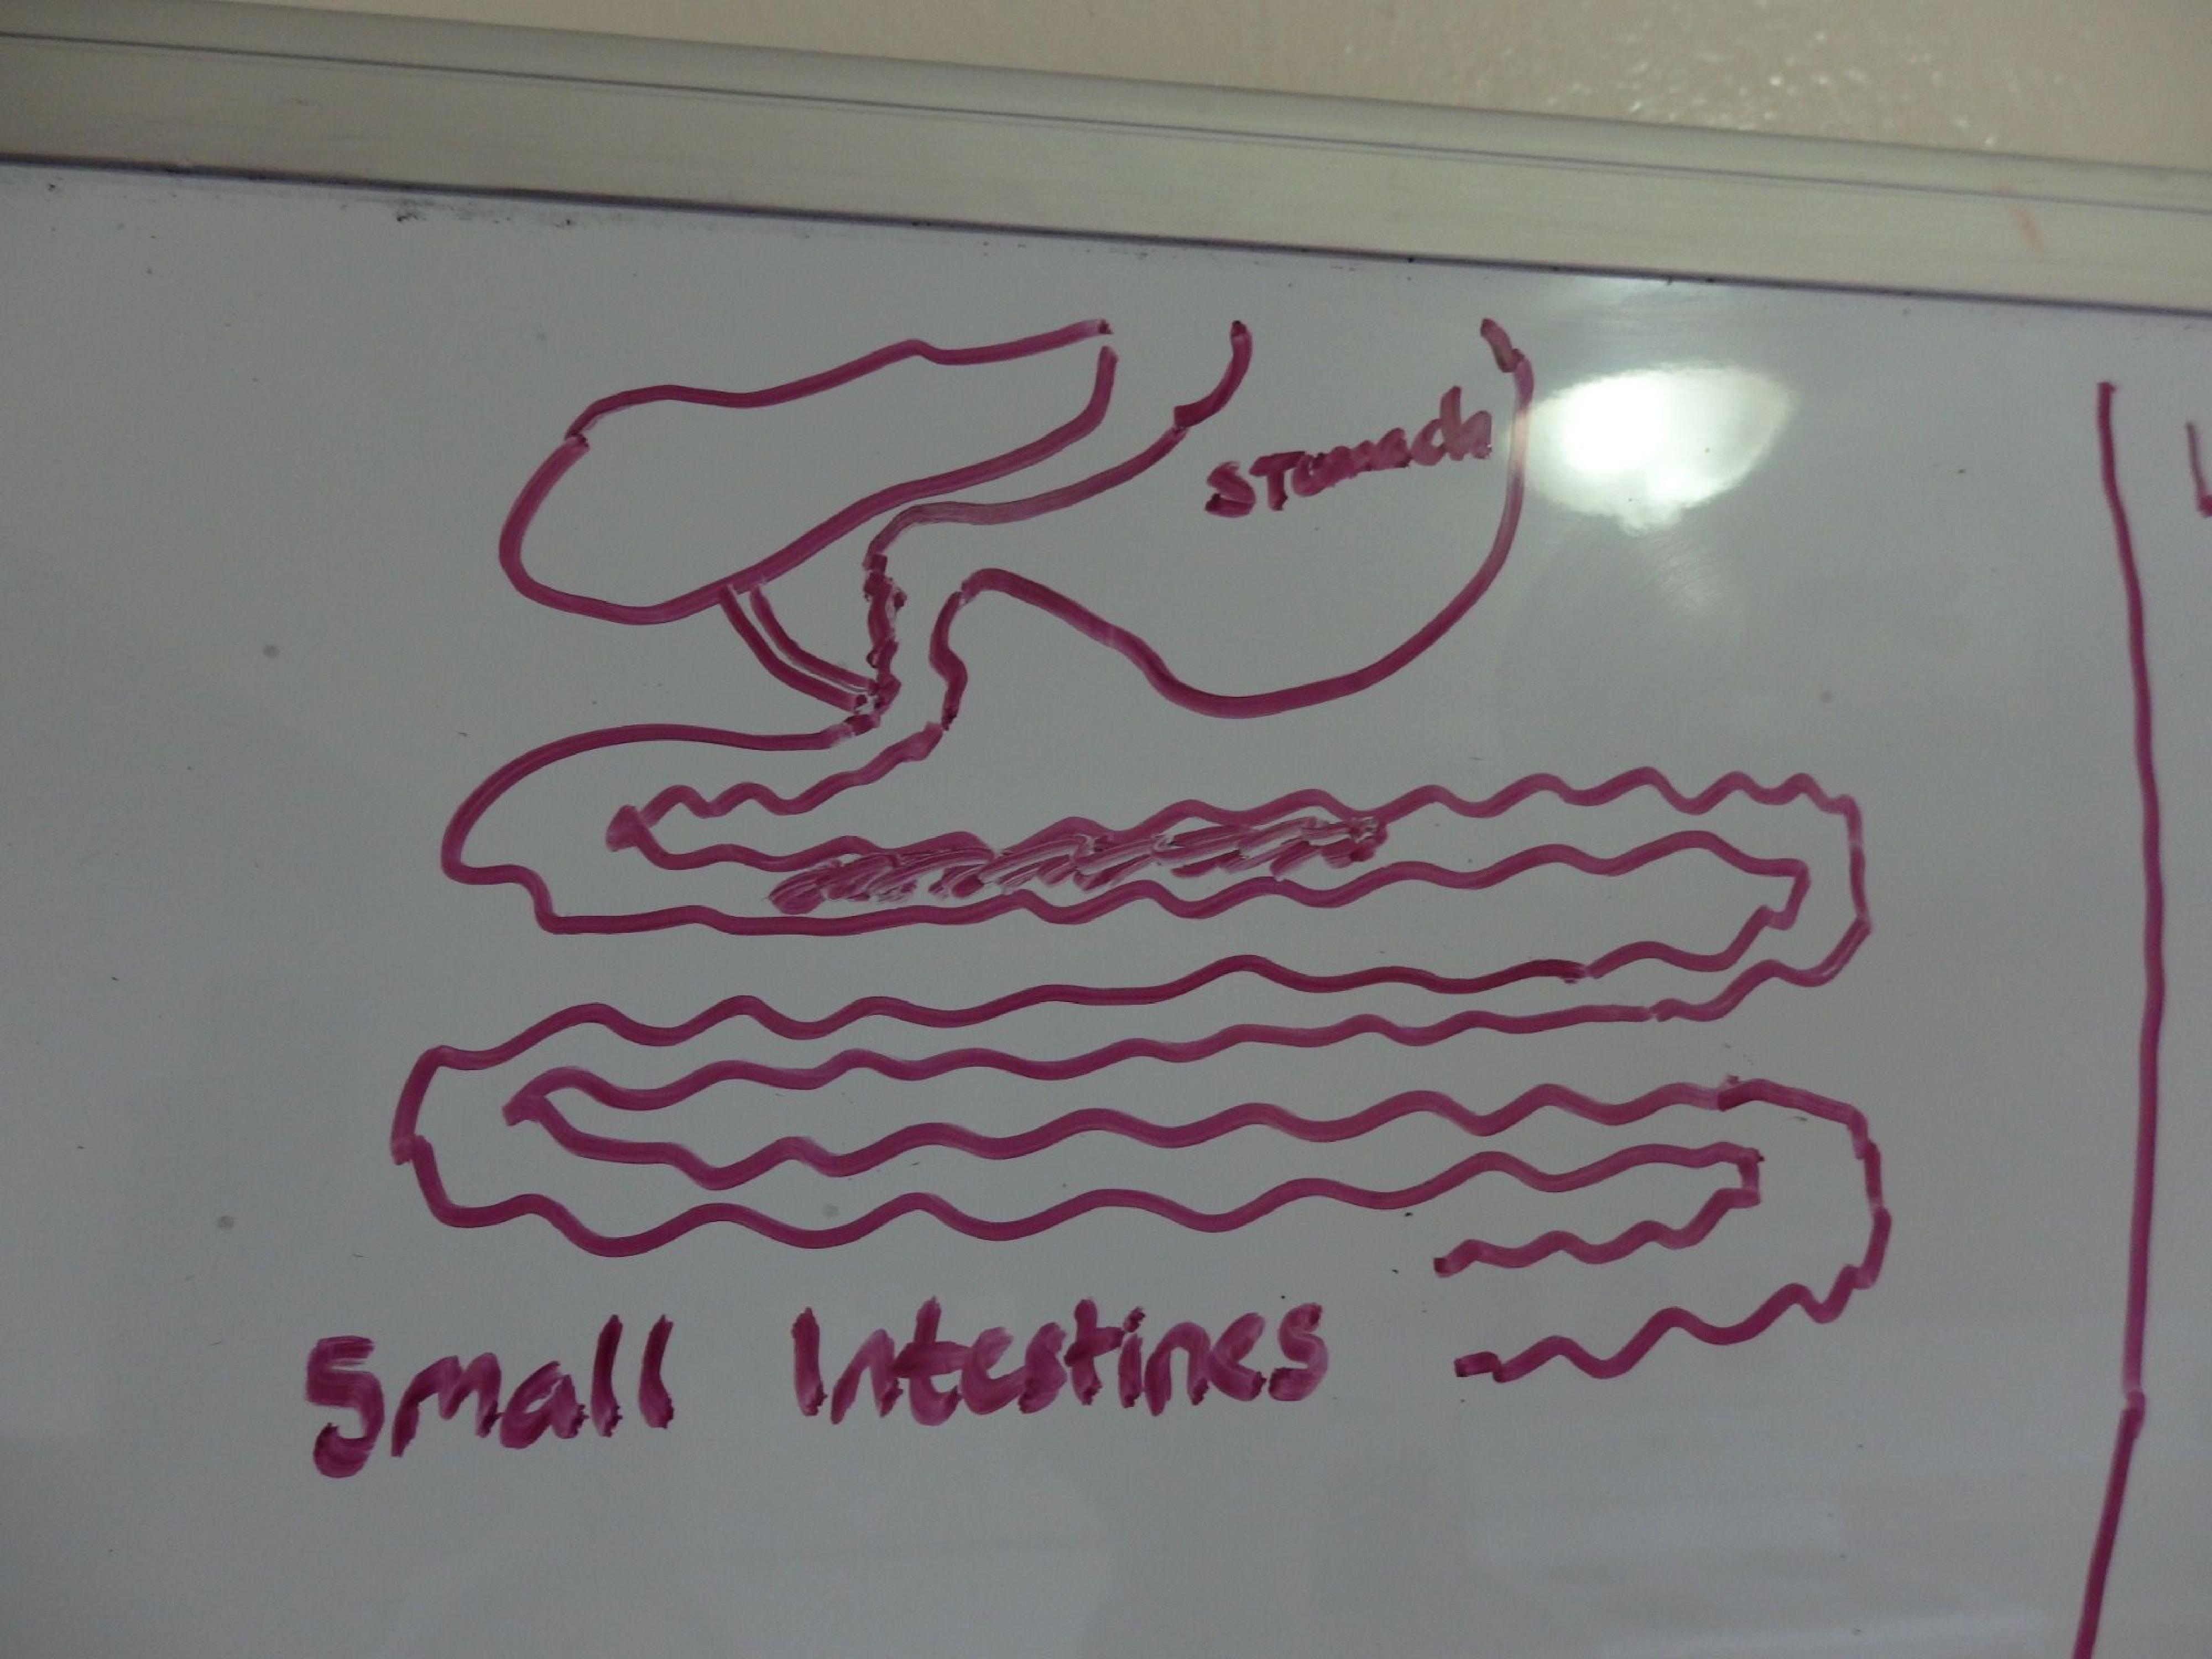 Stomach
Small Intestines